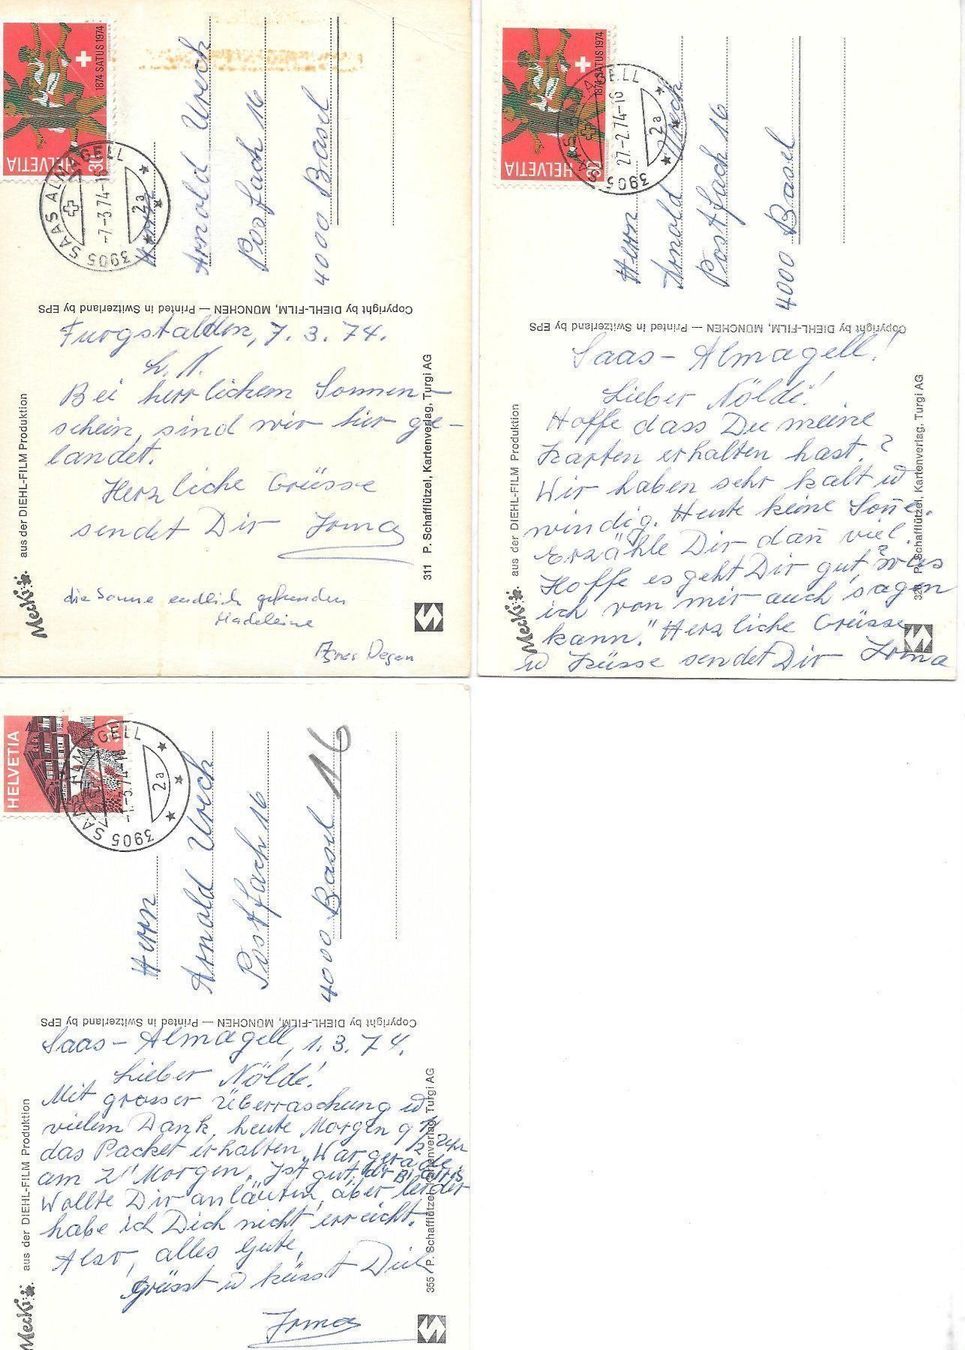 HELVETIA
1874 SATUS 1974
30
3905 SAAS ALMAGELL
-7.-3.74-1
2a
Herrn
Arnold Urech
Postfach 16
4000 Basel
Copyright by DIEHL-FILM, MÜNCHEN — Printed in Switzerland by EPS
Furgstalden, 7. 3. 74.
L. N.
Bei herrlichem Sonnen-
schein, sind wir hir ge-
landet.
Herzliche Grüsse
sendet Dir Irma
die Sonne endlich gefunden
Madeleine
Degen
Mecki aus der DIEHL-FILM Produktion
311 P. Schafflützel, Kartenverlag, Turgi AG
HELVETIA
1874 SATUS 1974
3905 SAAS ALMAGELL
27.-2.74-16
2a
Herrn
Arnold Urech
Postfach 16
4000 Basel
Copyright by DIEHL-FILM, MÜNCHEN — Printed in Switzerland by EPS
Saas-Almagell!
Lieber Nöldé!
Hoffe dass Du meine
Karten erhalten hast.?
Wir haben sehr kalt u
windig. Heute keine Soñe.
Erzähle Dir dañ viel.
Hoffe es geht Dir gut, was
ich von mir auch sagen
kann." Herzliche Grüsse
u Küsse sendet Dir Irma
Mecki aus der DIEHL-FILM Produktion
P. Schafflützel, Kartenverlag, Turgi AG
HELVETIA
3905 SAAS ALMAGELL
-1.-3.74-16
2a
Herrn
Arnold Urech
Postfach 16
4000 Basel 16
Copyright by DIEHL-FILM, MÜNCHEN — Printed in Switzerland by EPS
Saas-Almagell, 1. 3. 74.
Lieber Nöldé!
Mit grosser Überraschung u
vielem Dank, heute Morgen 9
das Packet erhalten, War gerade
am Z' Morgen. Ist gut,
Wollte Dir anläuten, aber leider
habe ich Dich nicht erreicht.
Also, alles Gute,
Grüsst u küsst Dich
Irma
Mecki aus der DIEHL-FILM Produktion
355 P. Schafflützel, Kartenverlag, Turgi AG